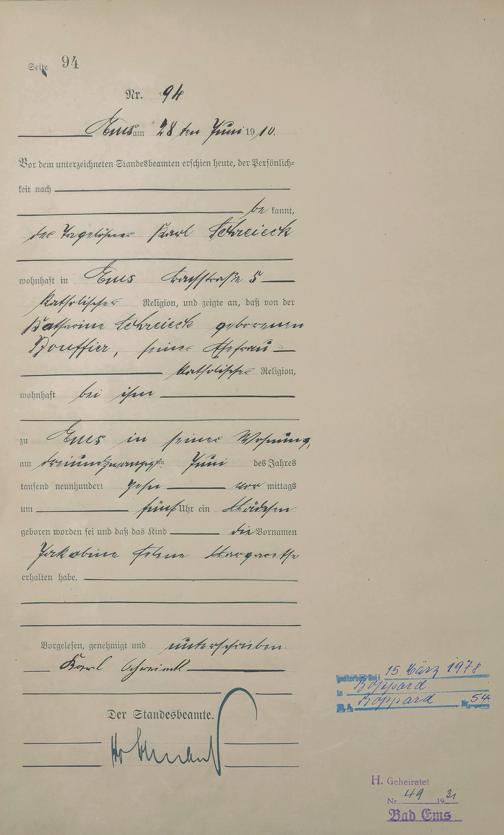 Seite 94
Nr. 94
Ems am 28ten Juni 1910.
Vor dem unterzeichneten Standesbeamten erschien heute, der Persönlich-
keit nach
be kannt,
der Tagelöhner Karl Schreieck
wohnhaft in Ems Bachstraße 5
katholischer Religion, und zeigte an, daß von der
Katharina Schreieck geborenen
Bouffier, seiner Ehefrau
katholischer Religion,
wohnhaft bei ihm
zu Ems in seiner Wohnung,
am dreiundzwanzigsten Juni des Jahres
tausend neunhundert zehn vor mittags
um fünf Uhr ein Mädchen
geboren worden sei und daß das Kind die Vornamen
Jakobine Margarethe
erhalten habe.
Vorgelesen, genehmigt und unterschrieben
Karl Schreieck
Der Standesbeamte.
15. März 1978
in Boppard
St.A. Boppard Nr. 54
H. Geheiratet
Nr. 49 1931
Bad Ems